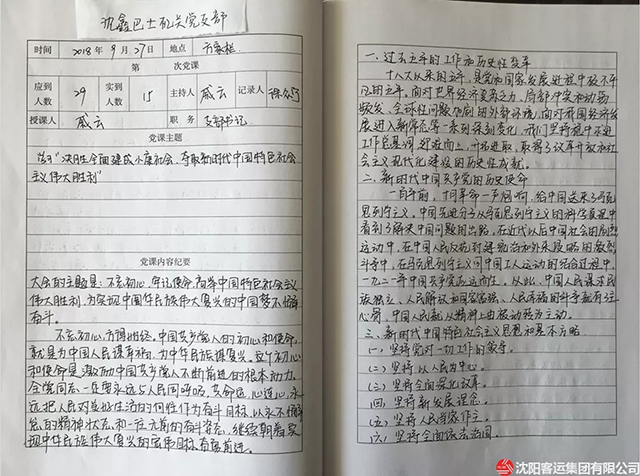 沈鑫巴士机关党支部
时间 2018年9月27日 地点
第 次党课
应到人数 29 实到人数 15 主持人 戚云 记录人
授课人 戚云 职务 支部书记
党课主题
学习"决胜全面建成小康社会、夺取新时代中国特色社会
主义伟大胜利"
党课内容纪要
大会的主题是：不忘初心，牢记使命，高举中国特色社会主义
伟大胜利，为实现中华民族伟大复兴的中国梦不懈
奋斗。
不忘初心，方得始终。中国共产党人的初心和使命，
就是为中国人民谋幸福，为中华民族谋复兴。这个初心
和使命是激励中国共产党人不断前进的根本动力。
全党同志一定要永远与人民同呼吸、共命运、心连心，永
远把人民对美好生活的向往作为奋斗目标，以永不懈
怠的精神状态和一往无前的奋斗姿态，继续朝着实
现中华民族伟大复兴的宏伟目标奋勇前进。
一、过去五年的工作和历史性变革
十八大以来的五年，是党和国家发展进程中极不平
凡的五年。面对世界经济复苏乏力、局部冲突和动荡
频发、全球性问题加剧的外部环境，面对我国经济发
展进入新常态等一系列深刻变化，我们坚持稳中求进
工作总基调，迎难而上，开拓进取，取得了改革开放和社
会主义现代化建设的历史性成就。
二、新时代中国共产党的历史使命
一百年前，十月革命一声炮响，给中国送来了马克
思列宁主义。中国先进分子从马克思列宁主义的科学真理中
看到了解决中国问题的出路。在近代以后中国社会的剧烈
运动中，在中国人民反抗封建统治和外来侵略的激烈
斗争中，在马克思列宁主义同中国工人运动的结合过程中，
一九二一年中国共产党应运而生。从此，中国人民谋求民
族独立、人民解放和国家富强、人民幸福的斗争就有了主
心骨，中国人民就从精神上由被动转为主动。
三、新时代中国特色社会主义思想和基本方略
(一)坚持党对一切工作的领导。
(二)坚持以人民为中心。
(三)坚持全面深化改革。
(四)坚持新发展理念。
(五)坚持人民当家作主。
(六)坚持全面依法治国。
沈阳客运集团有限公司